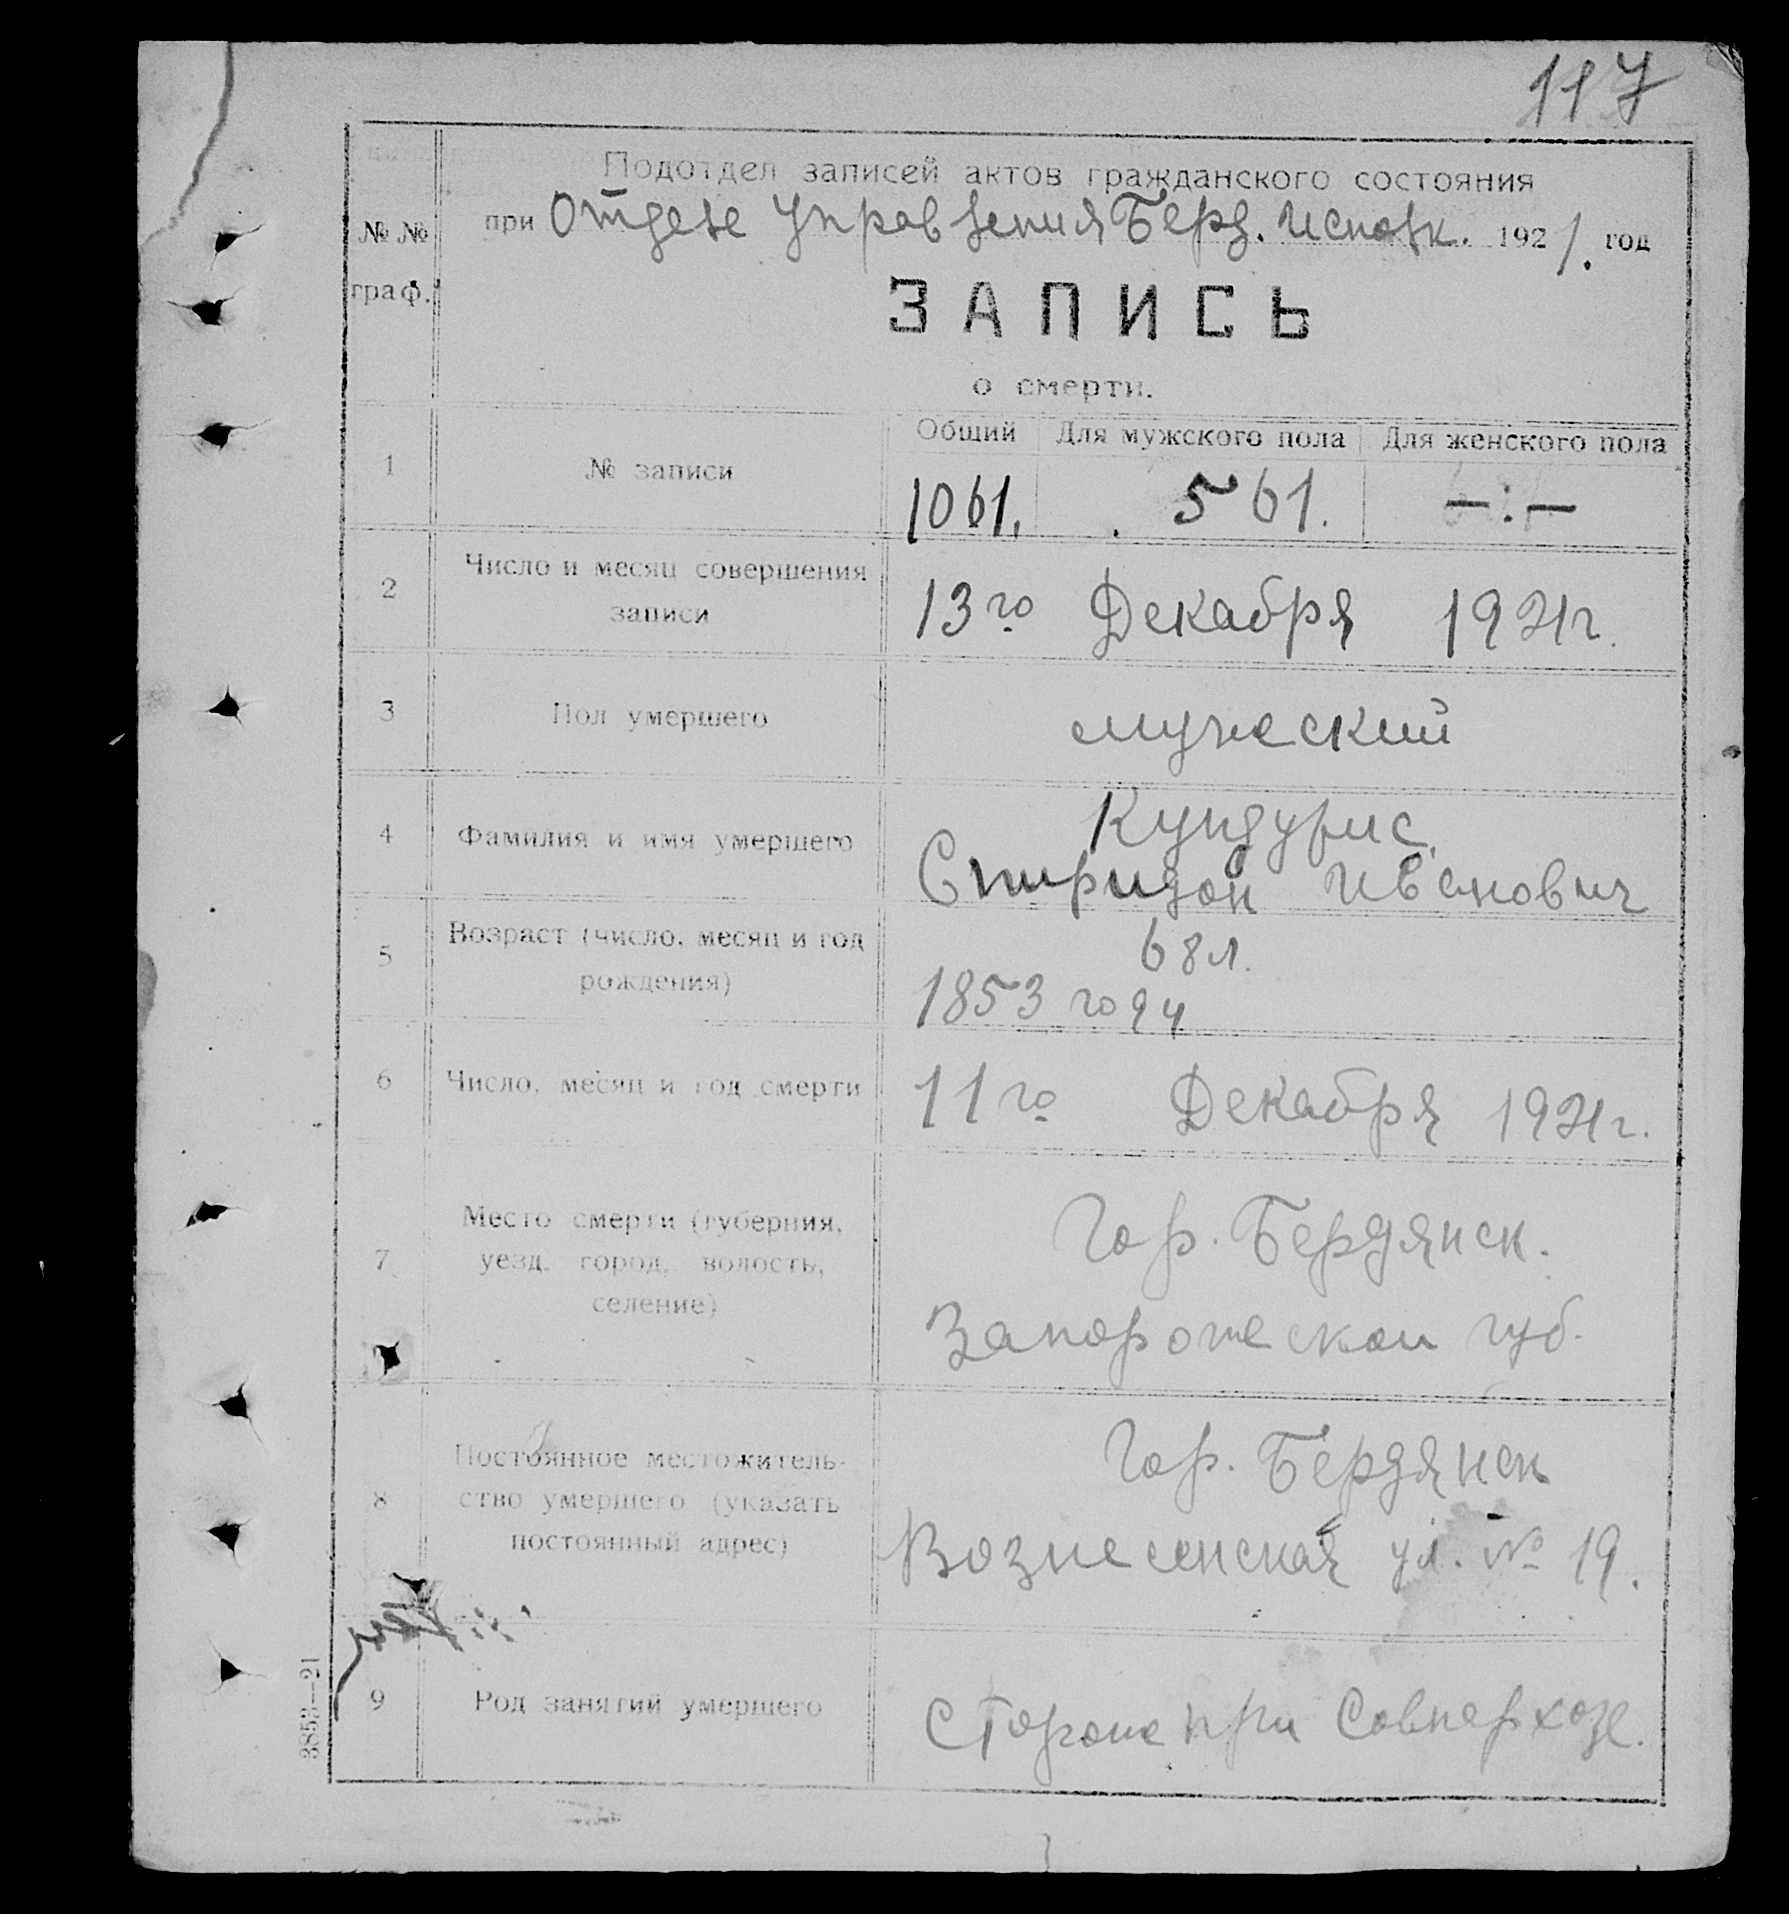 117
Подотдел записей актов гражданского состояния
при Отделе Управления Берд. Исполк. 1921. год
№№ граф.
ЗАПИСЬ
о смерти.
Общий Для мужского пола Для женского пола
1 № записи 1061. 561. —:—
2 Число и месяц совершения
записи 13го Декабря 1921г.
3 Пол умершего мужеский
4 Фамилия и имя умершего Кундурис
Спиридон Иванович
5 Возраст (число, месяц и год
рождения) 68л.
1853 году
6 Число, месяц и год смерти 11го Декабря 1921г.
7 Место смерти (губерния,
уезд, город, волость,
селение)
Гор. Бердянск.
Запорожской губ.
8 Постоянное местожитель-
ство умершего (указать
постоянный адрес)
Гор. Бердянск
Вознесенская ул. № 19.
9 Род занятий умершего Сторож при Совнархозе.
3853—21